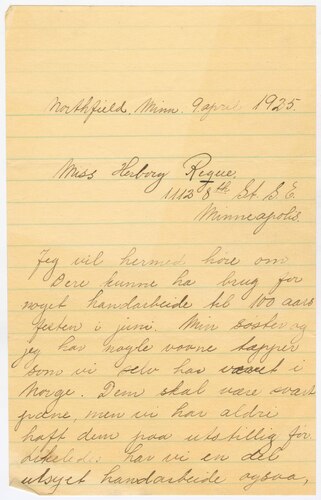 Northfield, Minn. 9 april 1925.
Miss Herborg Reque,
1112 8th St. S. E.
Minneapolis.
Jeg vil hermed høre om
Dere kunne ha brug for
noget handarbeide til 100 aars
festen i juni. Min søster og
jeg har nogle vovne tæpper
som vi selv har vævet i
Norge. Dem skal være svært
pæne, men vi har aldre
haft dem paa utstillig før.
har vi en del
utsyet handarbeide ogsaa,